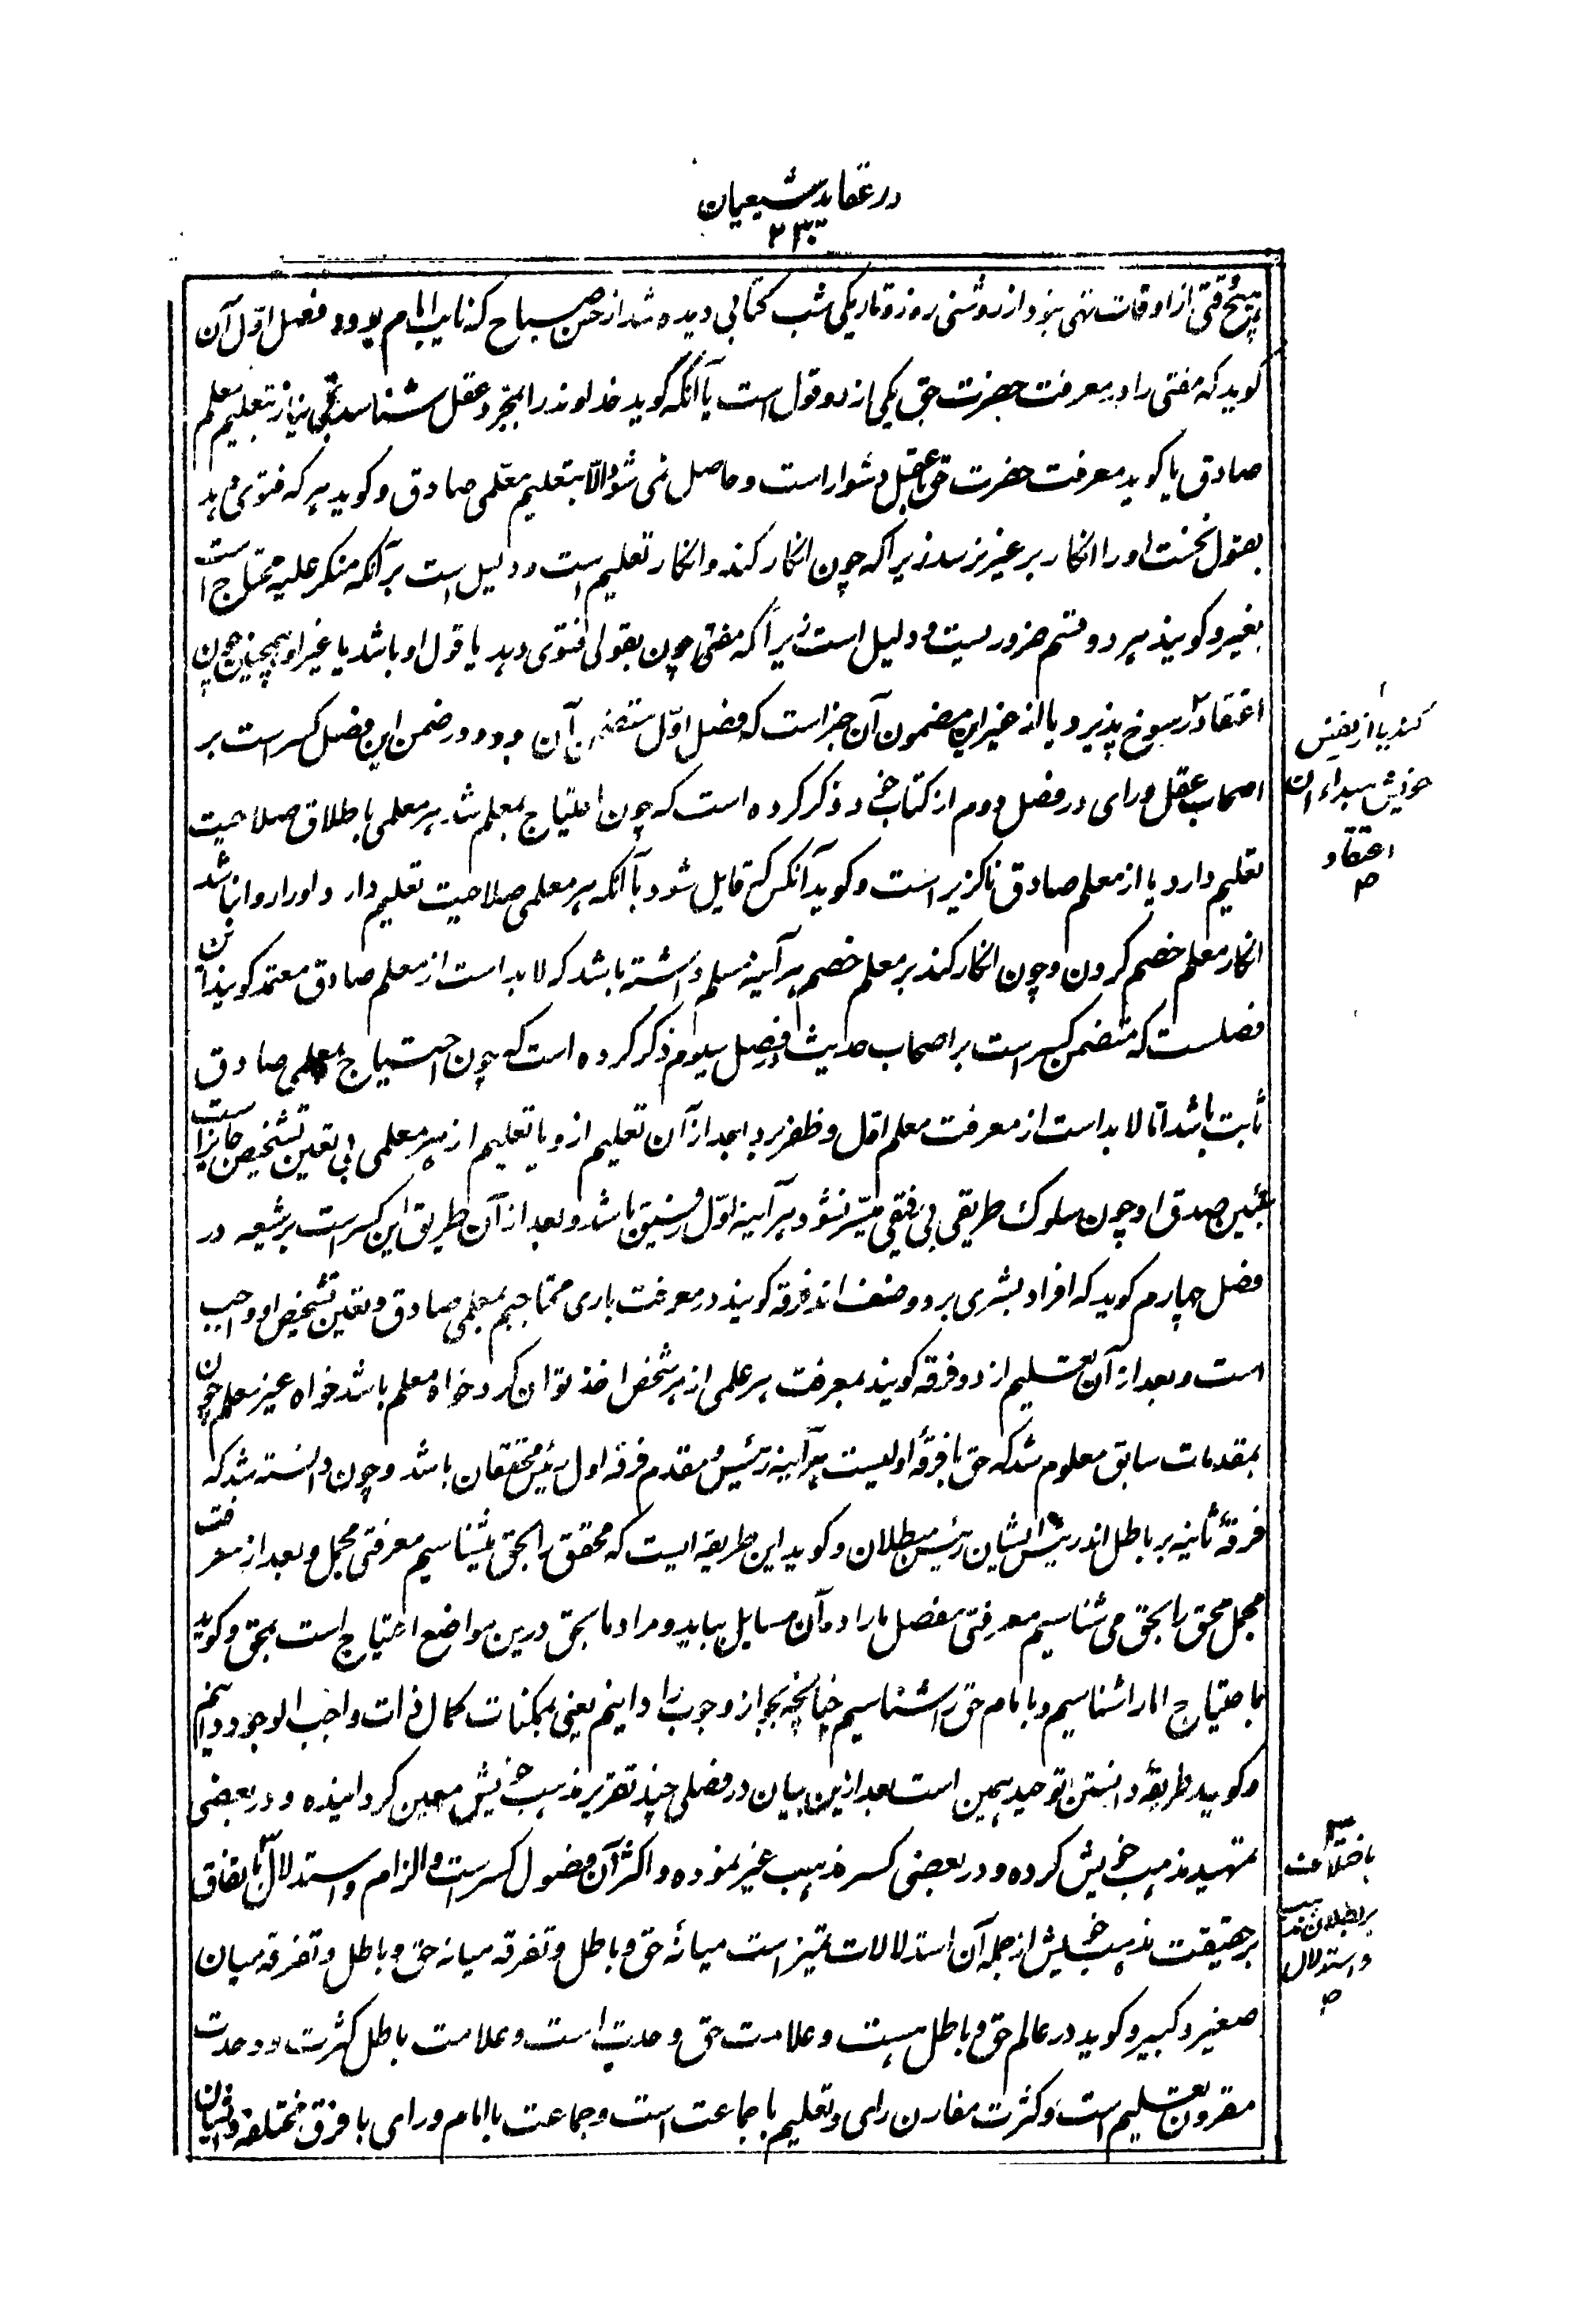 در عقاید شیعیان
۲۳۰
هیچ وقتی از اوقات تهی نبود از روشنی روز و تاریکی شب کتابی دیده شد از حسن صباح که نایب امام بود و فصل اول آن
کوید که مفتی را در معرفت حضرت حق یکی از دو قول است یا آنکه کوید خداوند را بمجرد عقل شناسد بی نیاز بتعلیم معلم
صادق یا کوید معرفت حضرت حق بعقل دشوار است و حاصل نمی شود الا بتعلیم معلمی صادق و کوید هر که فتوی دهد
بقول نخست او را انکار بر غیر نرسد زیرا که چون انکار کند و انکار تعلیم است و دلیل است بر آنکه منکر علیه محتاج است
بغیر و کویند هر دو قسم ضروریست و دلیل است زیرا که مفتی چون بقولی فتوی دهد یا قول او باشد یا غیر او همچنین چون
اعتقاد رسوخ پذیرد یا از غیر این مضمون آن جزاست که فصل اول متضمن آن بود و در ضمن این فصل کسر است بر
اصحاب عقل و رای در فصل دوم از کتاب خود ذکر کرده است که چون احتیاج بمعلم شد هر معلمی باطلاق صلاحیت
تعلیم دارد یا از معلم صادق ناکزیر است و کوید آنکس که قایل شود بآنکه هر معلمی صلاحیت تعلیم دارد او را روا نباشد
انکار معلم خصم کردن و چون انکار کند بر معلم خصم هر آینه مسلم داشته باشد که لابد است از معلم صادق معتمد کویند آن
فصلست که متضمن کسر است بر اصحاب حدیث و فصل سیوم ذکر کرده است که چون احتیاج بمعلمی صادق
ثابت باشد آیا لابد است از معرفت معلم اول و ظفر برو بعد از آن تعلیم ازو یا تعلیم از هر معلمی بی تعین تشخیص جایز است
بتبیین صدق او چون سلوک طریقی بی رفیقی میسر نشود هر آینه اول رفیق باشد و بعد از آن طریق این کسر است بر شیعه و در
فصل چهارم کوید که افراد بشری بر دو صنف اند فرقه کویند در معرفت باری محتاجیم بمعلمی صادق و تعین تشخیص او واجب
است و بعد از آن تعلیم از و و فرقه کویند بمعرفت هر علمی از هر شخص اخذ توان کرد خواه معلم باشد خواه غیر معلم چون
بمقدمات سابق معلوم شد که حق با فرقهٔ اولیست هر آینه رئیس و مقدم فرقه اول رئیس محققان باشد و چون دانسته شد که
فرقهٔ ثانیه بر باطل اند رئیس ایشان رئیس مبطلان و کوید این طریقه ایست که محقق را بحق بشناسیم معرفتی مجمل و بعد از معرفت
مجمل محق را بحق می شناسیم معرفتی مفصل ما را در آن مسایل بباید و مراد ما بحق درین مواضع احتیاج است بمحق و کوید
باحتیاج امام را شناسیم و بامام حق را شناسیم چنانچه بجواز وجوب را دانیم یعنی بممکنات کمال ذات واجب الوجود دانیم
و کوید طریقهٔ دانستن توحید همین است بعد ازین بیان در فصلی چند تقریر مذهب خویش معین کردانیده و در بعضی
تمهید مذهب خویش کرده و در بعضی کسر مذهب غیر نموده و اکثر آن فصول کسر است و الزام و استدلال باتفاق
بر حقیقت مذهب خویش از جمله آن استدلالات تمیز است میانهٔ حق و باطل و تفرقه میانه حق و باطل و تفرقه میان
صغیر و کبیر و کوید در عالم حق و باطل هست و علامت حق وحدت است و علامت باطل کثرت و وحدت
مقرون بتعلیم است و کثرت مقارن رای و تعلیم با جماعت است و جماعت با امام و رای با فرق مختلفه و ایشان
کند یا از نفس
خویش مبداء آن
اعتقاد
باختلاف
بر بطلان مذهب
و استدلال